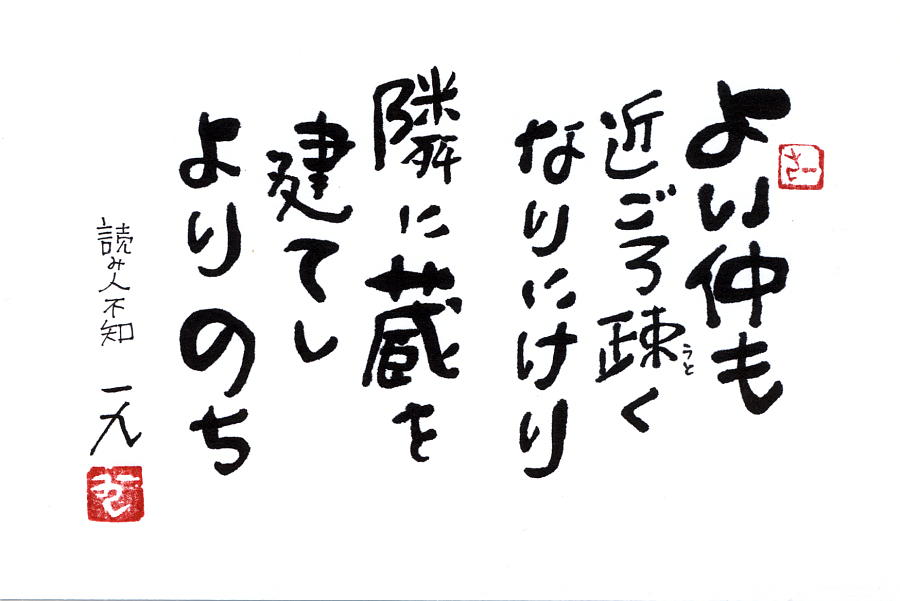 よい仲も
近ごろ疎く
うと
なりにけり
隣に蔵を
建てし
よりのち
読み人不知 一九